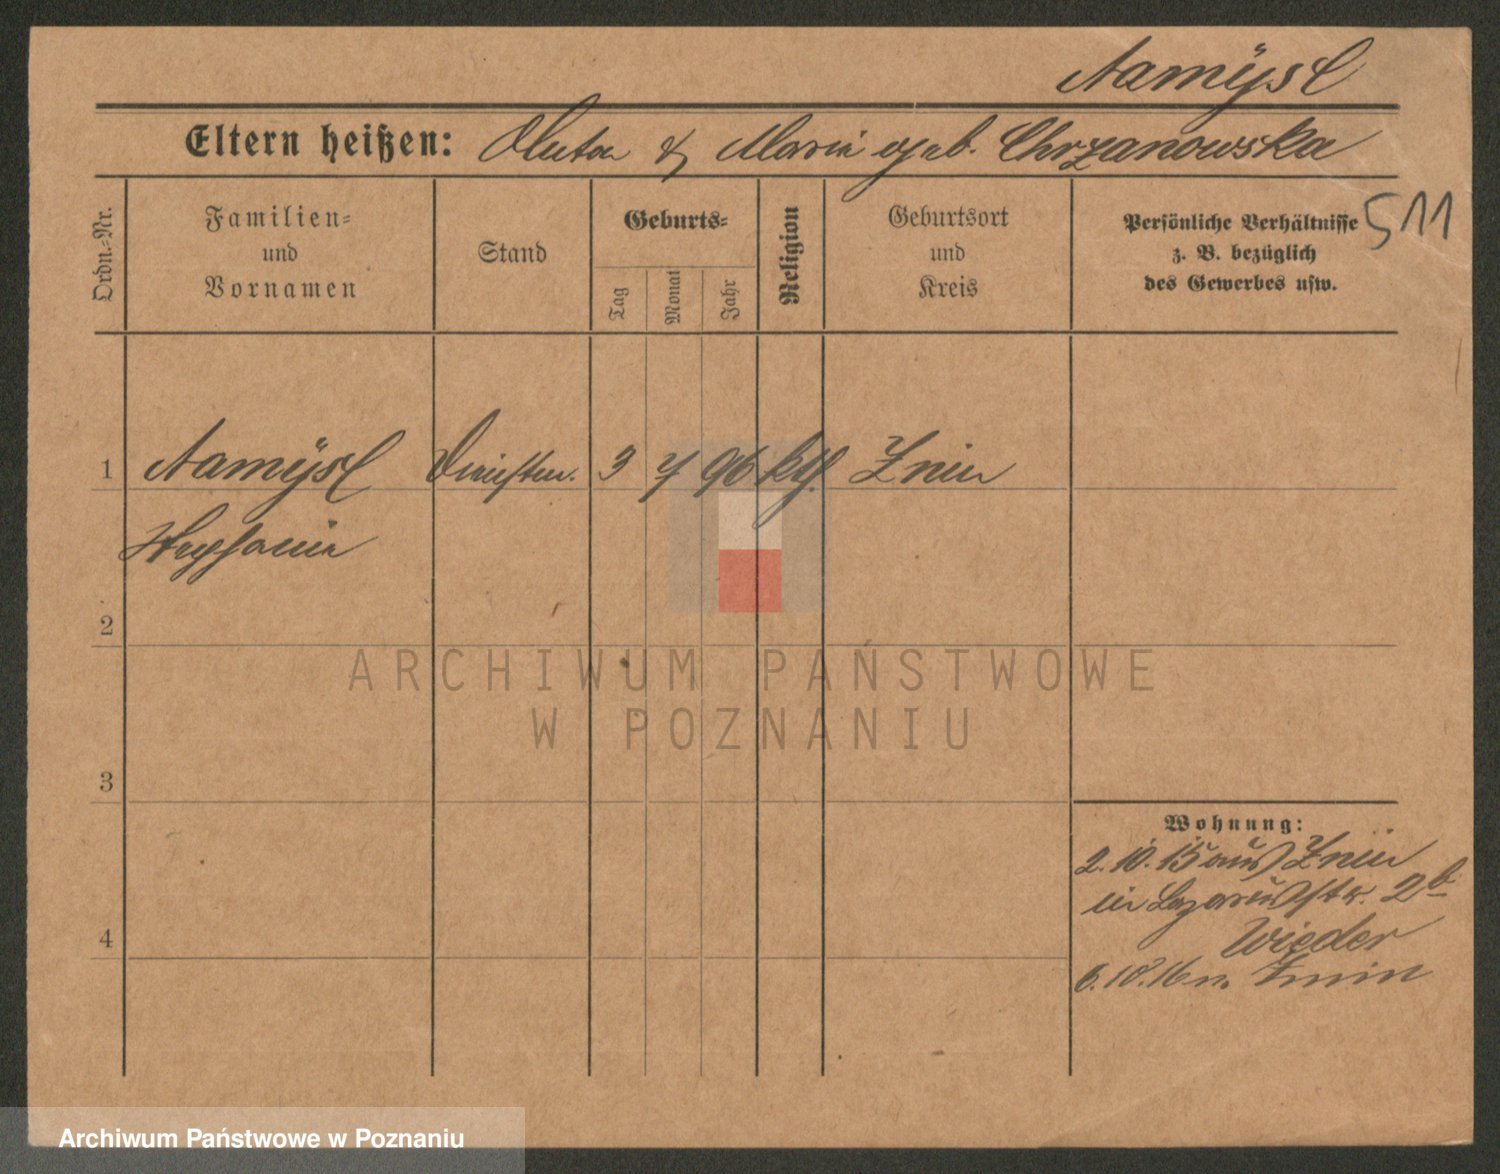 Namÿsl
Eltern heißen: Anton & Marie geb. Chrzanowska
Ordn.-Nr.
Familien-
und
Vornamen
Stand
Geburts-
Tag
Monat
Jahr
Religion
Geburtsort
und
Kreis
Persönliche Verhältnisse
z. B. bezüglich
des Gewerbes usw.
511
1 Namÿsl 3 7 96 kth. Znin
Stephanie
2
3
4
Wohnung:
2.10.15 aus Znin
in Lazarusstr. 2b
Wieder
6.10.16 n. Znin
ARCHIWUM PAŃSTWOWE
W POZNANIU
Archiwum Państwowe w Poznaniu